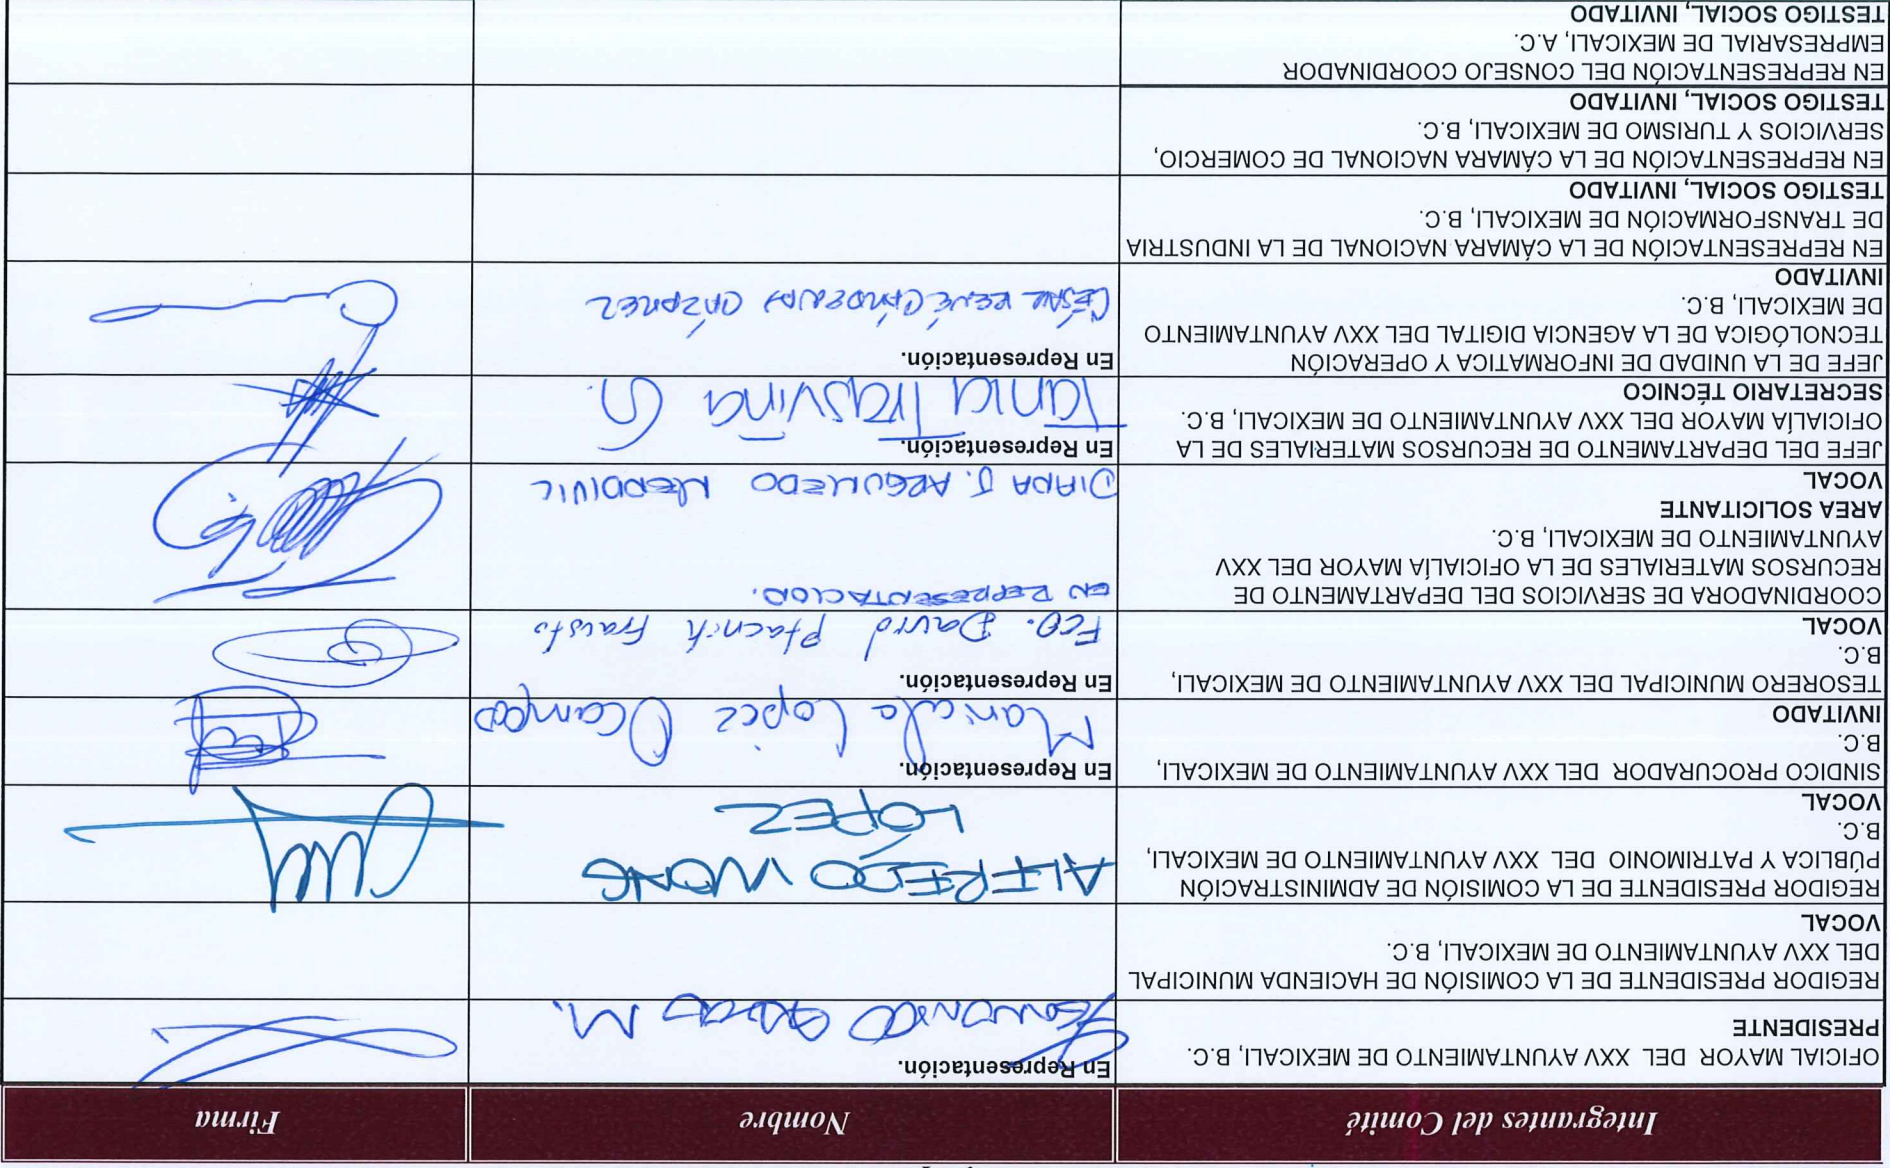 Integrantes del Comité
Nombre
Firma
OFICIAL MAYOR DEL XXV AYUNTAMIENTO DE MEXICALI, B.C.
PRESIDENTE
En Representación.
M.
REGIDOR PRESIDENTE DE LA COMISIÓN DE HACIENDA MUNICIPAL
DEL XXV AYUNTAMIENTO DE MEXICALI, B.C.
VOCAL
REGIDOR PRESIDENTE DE LA COMISIÓN DE ADMINISTRACIÓN
PÚBLICA Y PATRIMONIO DEL XXV AYUNTAMIENTO DE MEXICALI,
B.C.
VOCAL
ALFREDO WONG
LÓPEZ
SINDICO PROCURADOR DEL XXV AYUNTAMIENTO DE MEXICALI,
B.C.
INVITADO
En Representación.
Maricela Lopez Ocampo
TESORERO MUNICIPAL DEL XXV AYUNTAMIENTO DE MEXICALI,
B.C.
VOCAL
En Representación.
Fco. David Ptacnik Frausto
COORDINADORA DE SERVICIOS DEL DEPARTAMENTO DE
RECURSOS MATERIALES DE LA OFICIALÍA MAYOR DEL XXV
AYUNTAMIENTO DE MEXICALI, B.C.
AREA SOLICITANTE
VOCAL
EN REPRESENTACION.
DIANA J. ARGUILEDO MENDIVIL
JEFE DEL DEPARTAMENTO DE RECURSOS MATERIALES DE LA
OFICIALÍA MAYOR DEL XXV AYUNTAMIENTO DE MEXICALI, B.C.
SECRETARIO TÉCNICO
En Representación.
Tania Trasviña G.
JEFE DE LA UNIDAD DE INFORMATICA Y OPERACIÓN
TECNOLÓGICA DE LA AGENCIA DIGITAL DEL XXV AYUNTAMIENTO
DE MEXICALI, B.C.
INVITADO
En Representación.
CÉSAR RENÉ CÁRDENAS CÁZAREZ
EN REPRESENTACIÓN DE LA CÁMARA NACIONAL DE LA INDUSTRIA
DE TRANSFORMACIÓN DE MEXICALI, B.C.
TESTIGO SOCIAL, INVITADO
EN REPRESENTACIÓN DE LA CÁMARA NACIONAL DE COMERCIO,
SERVICIOS Y TURISMO DE MEXICALI, B.C.
TESTIGO SOCIAL, INVITADO
EN REPRESENTACIÓN DEL CONSEJO COORDINADOR
EMPRESARIAL DE MEXICALI, A.C.
TESTIGO SOCIAL, INVITADO